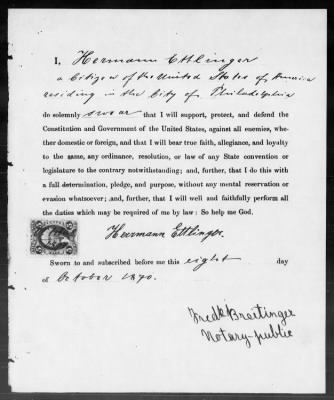 I, Hermann Ettlinger
a Citizen of the United States of America
residing in the City of Philadelphia
do solemnly swear that I will support, protect, and defend the
Constitution and Government of the United States, against all enemies, whe-
ther domestic or foreign, and that I will bear true faith, allegiance, and loyalty
to the same, any ordinance, resolution, or law of any State convention or
legislature to the contrary notwithstanding; and, further, that I do this with
a full determination, pledge, and purpose, without any mental reservation or
evasion whatsoever; and, further, that I will well and faithfully perform all
the duties which may be required of me by law: So help me God.
Hermann Ettlinger.
Sworn to and subscribed before me this eight day
of October 1870.
Fredk Breitinger
Notary-public